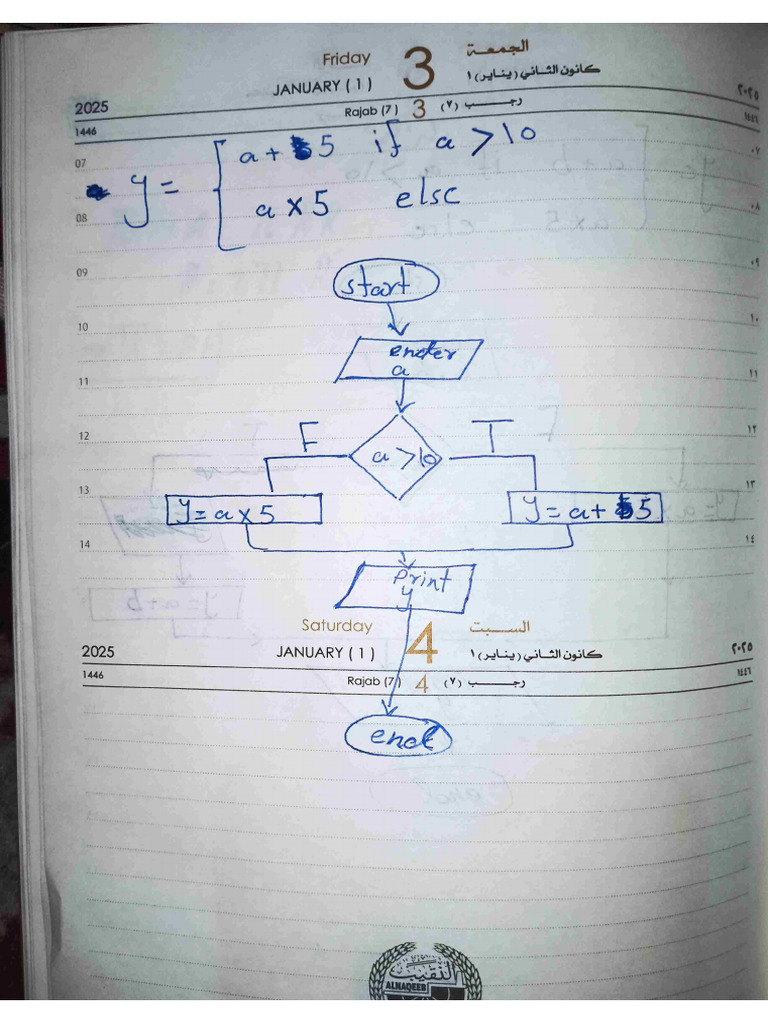 Friday 3 الجمعة
JANUARY ( 1 ) كانون الثاني (يناير) ١
2025 Rajab (7) 3 رجب (٧) ٢٠٢٥
1446 ١٤٤٦
07 ٠٧
y = a + 5 if a > 10
a × 5 else
08 ٠٨
09 ٠٩
start
10 ١٠
enter
a
11 ١١
12 ١٢
F T
a > 10
13 ١٣
y = a × 5 y = a + 5
14 ١٤
Print
y
Saturday 4 السبت
2025 JANUARY ( 1 ) كانون الثاني (يناير) ١ ٢٠٢٥
1446 Rajab (7) 4 رجب (٧) ١٤٤٦
end
النقيب
ALNAQEEB